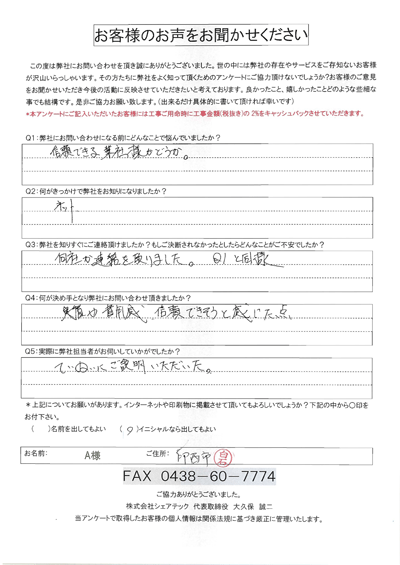 お客様のお声をお聞かせください
この度は弊社にお問い合わせを頂き誠にありがとうございました。世の中には弊社の存在やサービスをご存知ないお客様
が沢山いらっしゃいます。その方たちに弊社をよく知って頂くためのアンケートにご協力頂けないでしょうか?お客様のご意見
をお聞かせいただき今後の活動に反映させていただきたいと考えております。良かったこと、嬉しかったことどのような些細な
事でも結構です。是非ご協力お願い致します。(出来るだけ具体的に書いて頂ければ幸いです)
*本アンケートにご記入いただいたお客様には工事ご用命時に工事金額(税抜き)の2%をキャッシュバックさせていただきます。
Q1:弊社にお問い合わせになる前にどんなことで悩んでいましたか?
信頼できる弊社様かどうか。
Q2:何がきっかけで弊社をお知りになりましたか?
ネット
Q3:弊社を知りすぐにご連絡頂けましたか?もしご決断されなかったとしたらどんなことがご不安でしたか?
何社か連絡を取りました。 Q1と同様
Q4:何が決め手となり弊社にお問い合わせ頂きましたか?
信頼できそうと感じた点
Q5:実際に弊社担当者がお伺いしていかがでしたか?
ていねいにご説明いただいた。
*上記についてお願いがあります。インターネットや印刷物に掲載させて頂いてもよろしいでしょうか?下記の中から〇印を
お付下さい。
( )名前を出してもよい (〇)イニシャルなら出してもよい
お名前: A様 ご住所: 印西市 白石
FAX 0438-60-7774
ご協力ありがとうございました。
株式会社シェアテック 代表取締役 大久保 誠二
当アンケートで取得したお客様の個人情報は関係法規に基づき厳正に管理いたします。